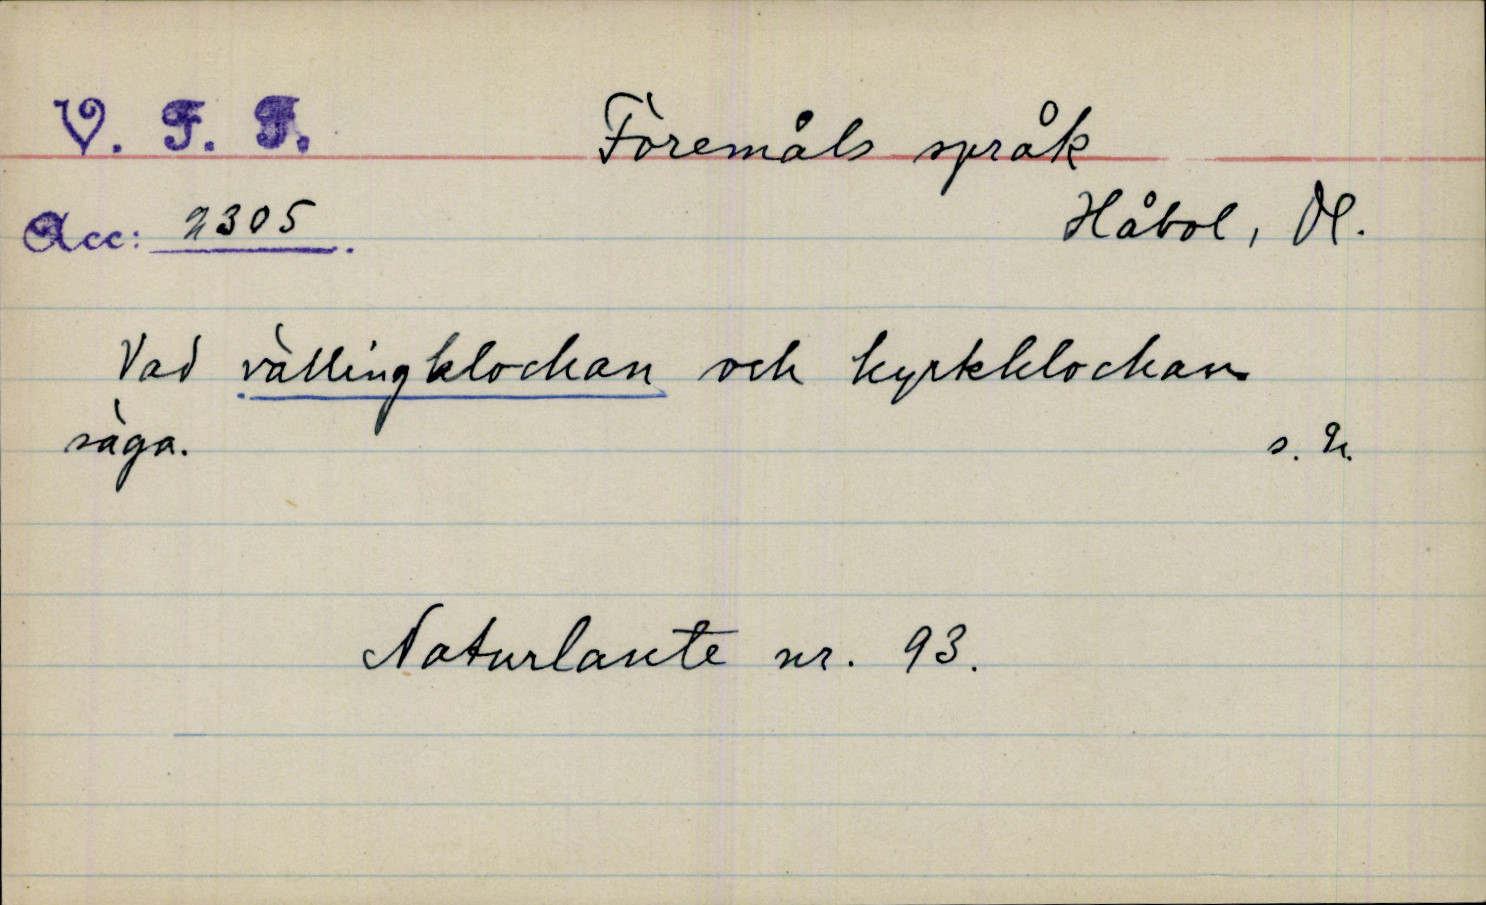 V. F. F.
Föremåls språk
Acc: 2305.
Håbol, Dl.
Vad vällingklockan och kyrkklockan
säga.
s. 2.
Naturlante nr. 93.